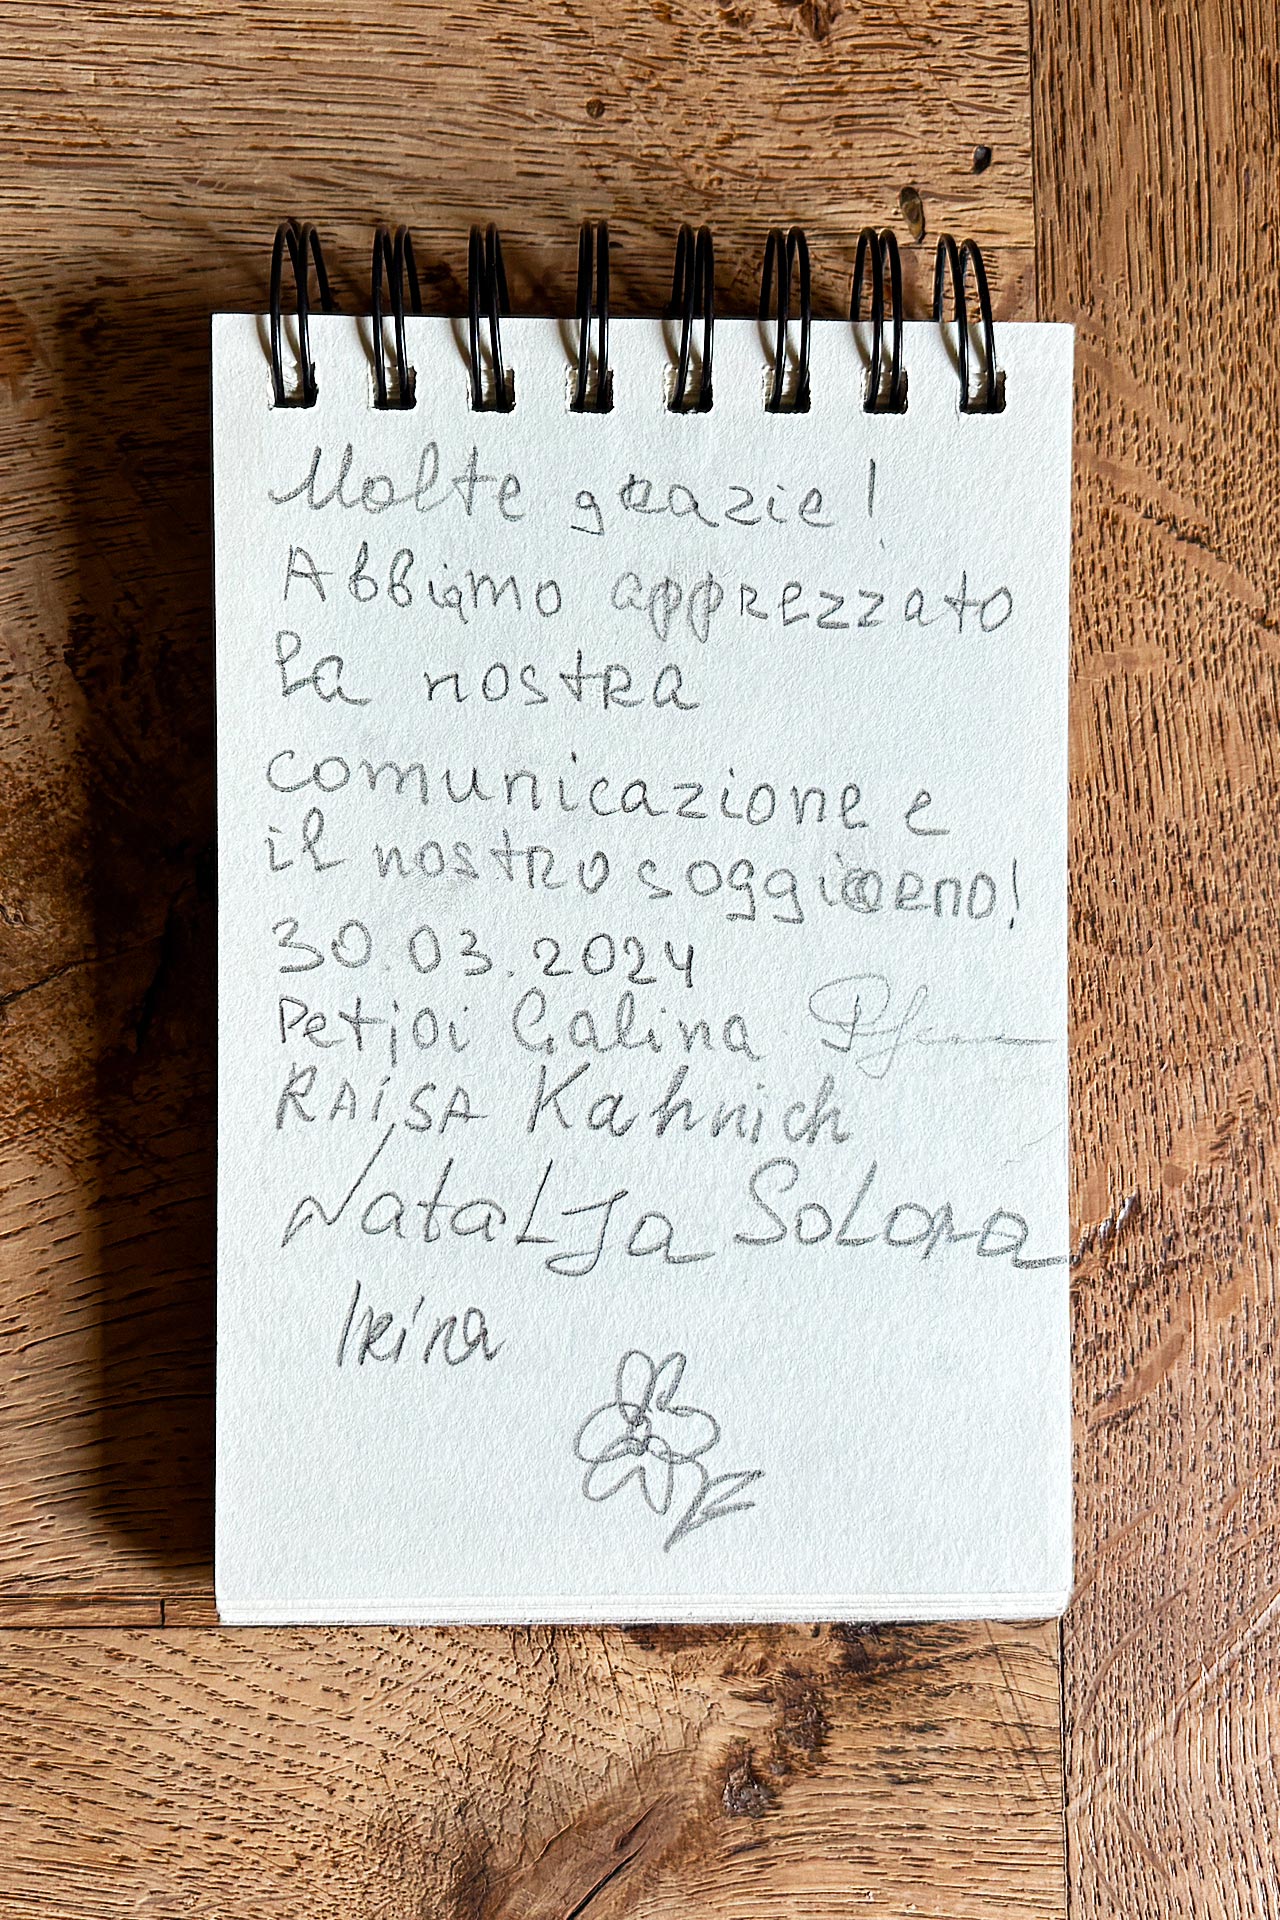 Molte grazie!
Abbiamo apprezzato
la nostra
comunicazione e
il nostro soggiorno!
30.03.2024
Petjoi Galina
RAiSA Kahnich
NataLJa SoLona
Irina